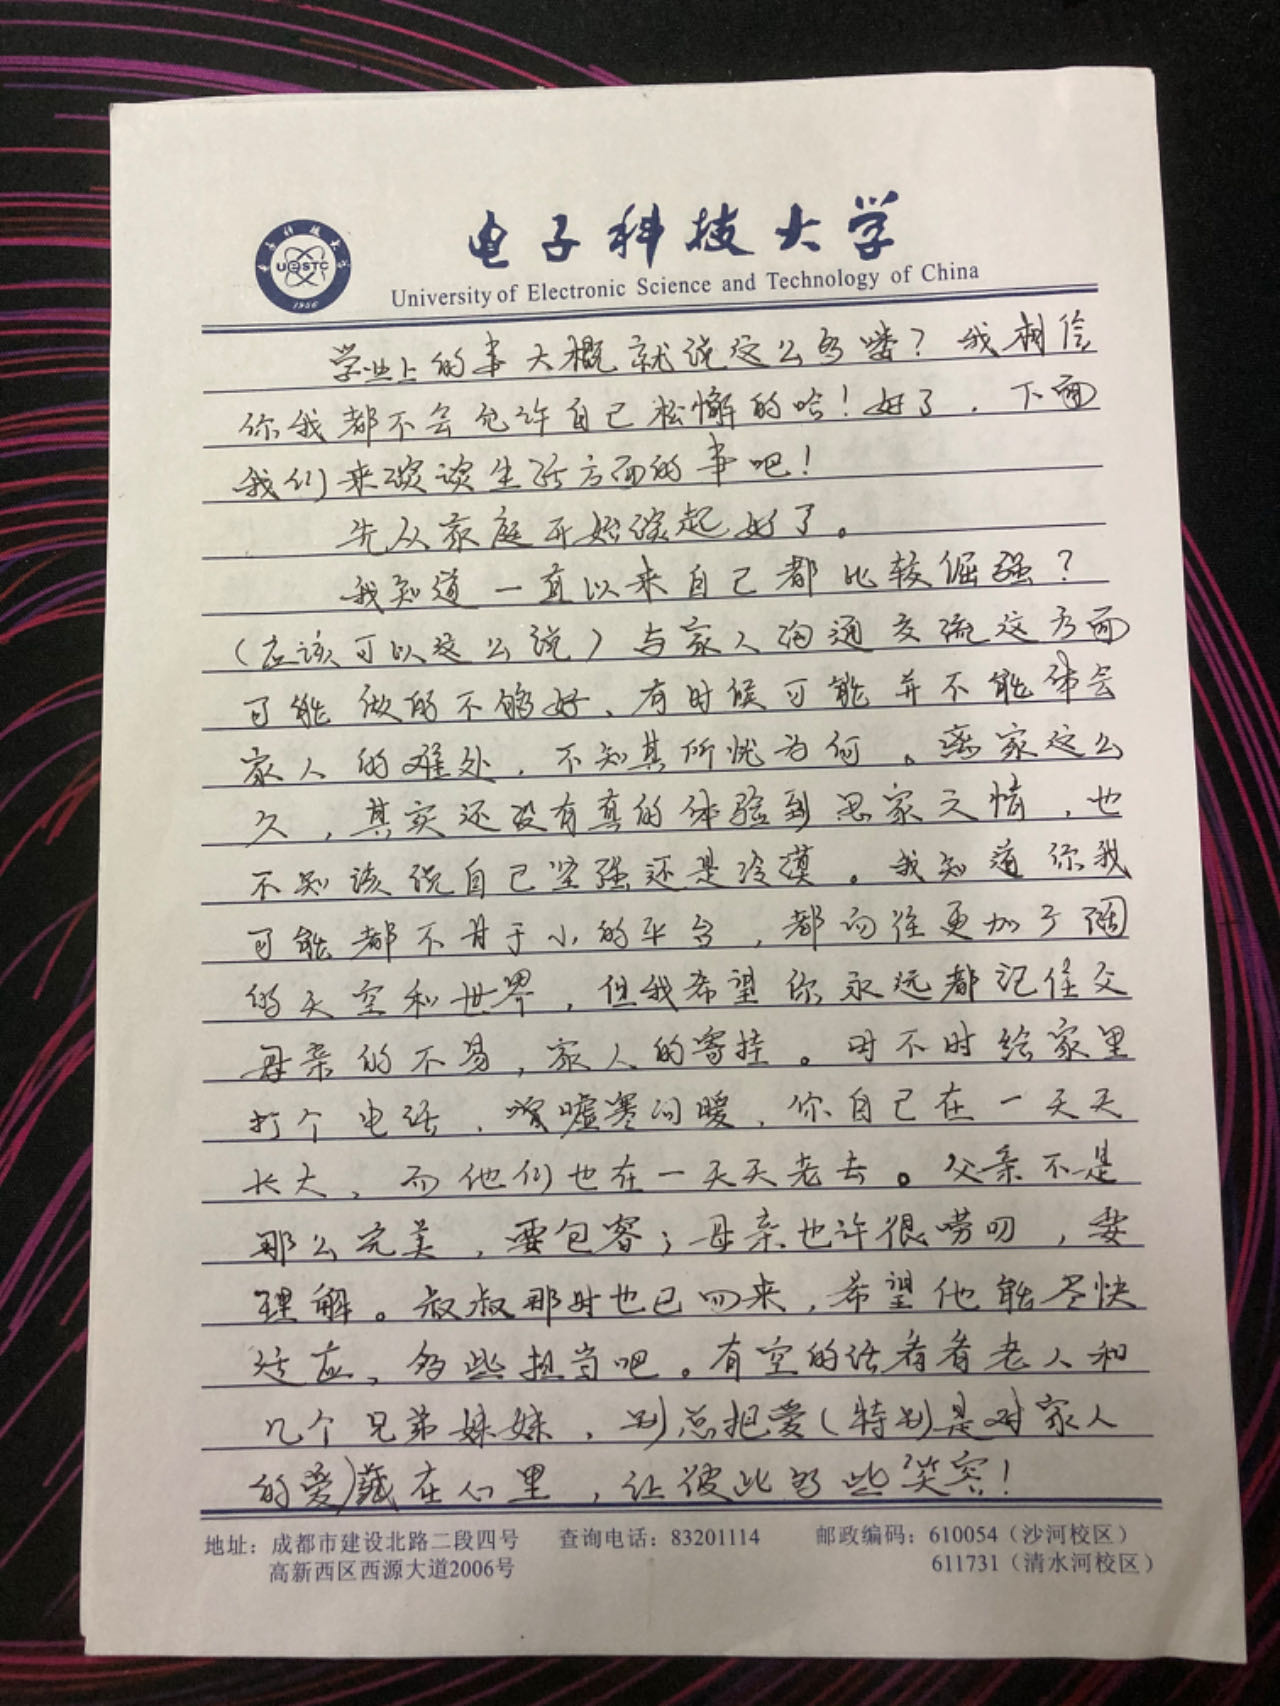 电子科技大学
University of Electronic Science and Technology of China
电子科技大学
UESTC
1956
学业上的事大概就说这么多喽？我相信
你我都不会允许自己松懈的哈！好了，下面
我们来谈谈生活方面的事吧！
先从家庭开始谈起好了。
我知道一直以来自己都比较倔强？
（应该可以这么说）与家人沟通交流这方面
可能做的不够好、有时候可能并不能体会
家人的难处，不知其所忧为何。离家这么
久，其实还没有真的体验到思家之情，也
不知该说自己坚强还是冷漠。我知道你我
可能都不甘于小的平台，都向往更加广阔
的天空和世界，但我希望你永远都记住父
母亲的不易，家人的寄挂。时不时给家里
打个电话，嘘寒问暖，你自己在一天天
长大，而他们也在一天天老去。父亲不是
那么完美，要包容；母亲也许很唠叨，要
理解。叔叔那时也已回来，希望他能尽快
适应，多些担当吧。有空的话看看老人和
几个兄弟妹妹，别总把爱（特别是对家人
的爱）藏在心里，让彼此多些笑容！
地址：成都市建设北路二段四号 查询电话：83201114 邮政编码：610054（沙河校区）
高新西区西源大道2006号 611731（清水河校区）